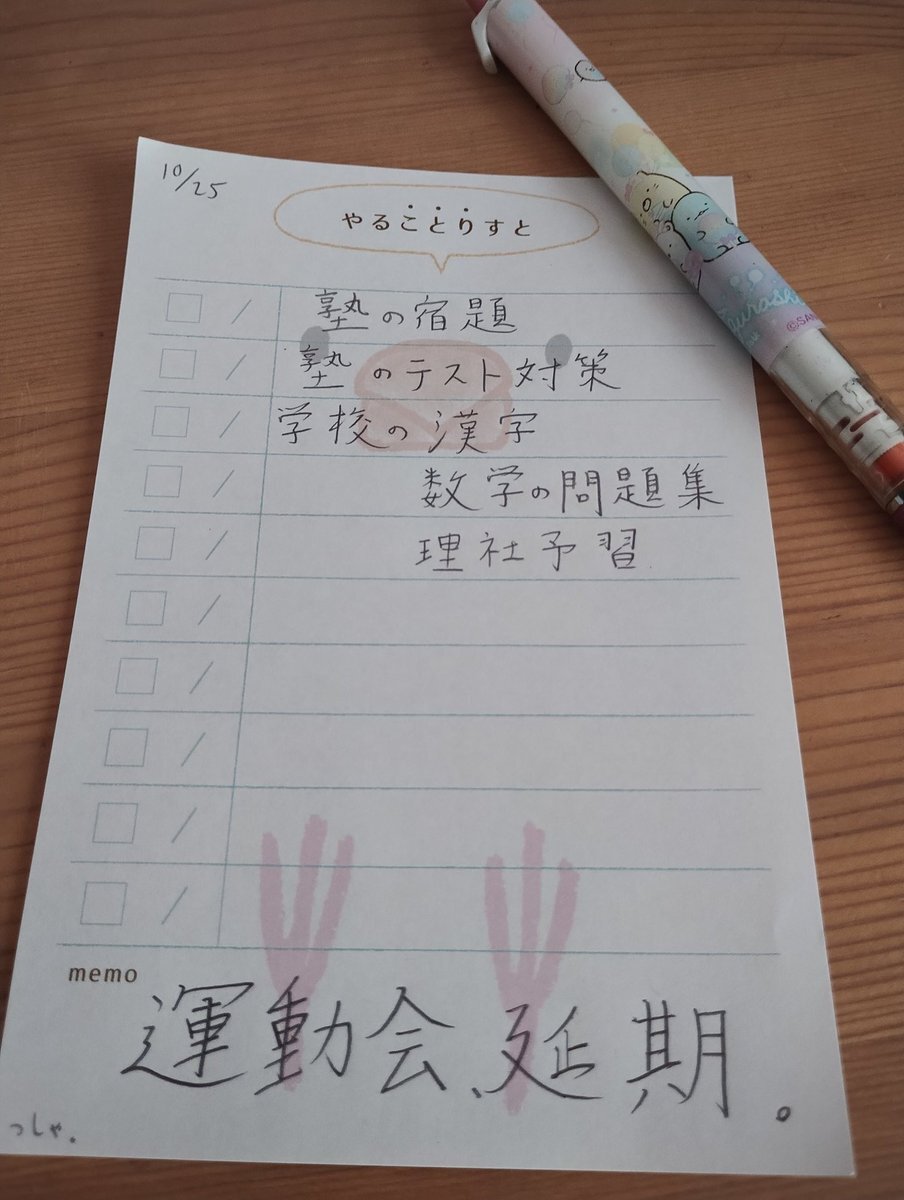 10/25
やることりすと
塾の宿題
塾のテスト対策
学校の漢字
数学の問題集
理社予習
memo
運動会、延期。
っしゃ.
©SAN